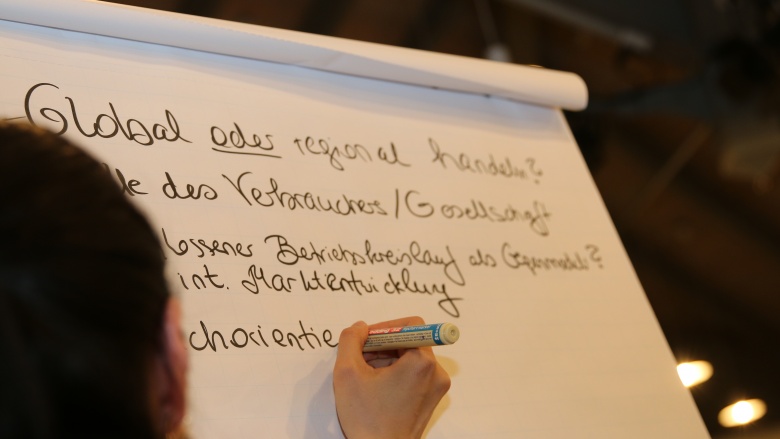 Global oder regional handeln?
lle des Verbrauchers/Gesellschaft
lossener Betriebskreislauf als Gegenmodell?
int. Marktentwicklung
chorientie